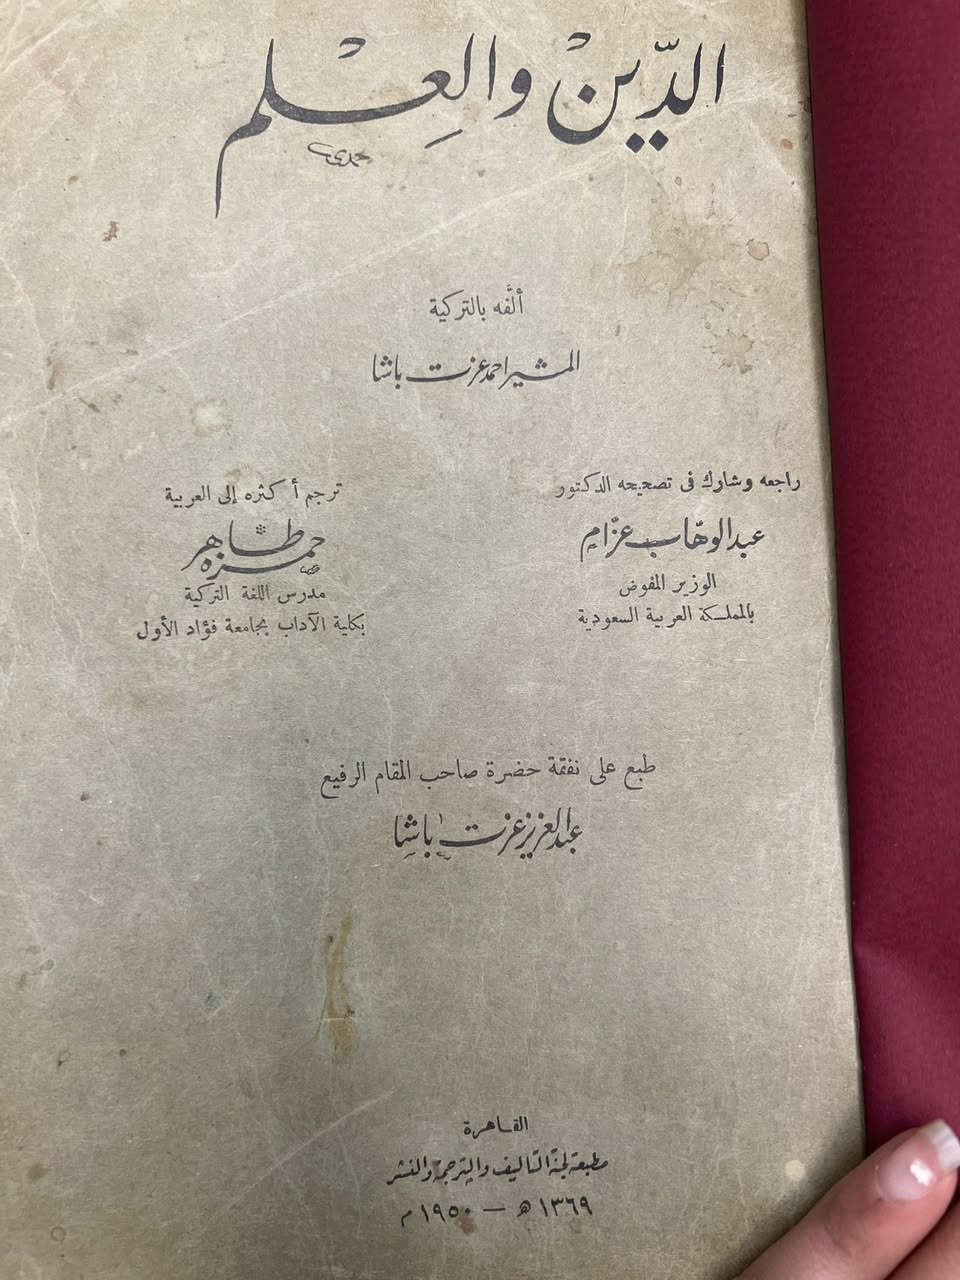 الدّين والعِلم
حمدي
ألّفه بالتركية
المشير احمد عزت باشا
راجعه وشارك فى تصحيحه الدكتور
عبد الوهّاب عزّام
الوزير المفوض
بالمملكة العربية السعودية
ترجم أكثره إلى العربية
حمزه طاهر
مدرس اللغة التركية
بكلية الآداب بجامعة فؤاد الأول
طبع على نفقة حضرة صاحب المقام الرفيع
عبد العزيز عزت باشا
القاهرة
مطبعة لجنة التأليف والترجمة والنشر
١٣٦٩ هـ — ١٩٥٠ م